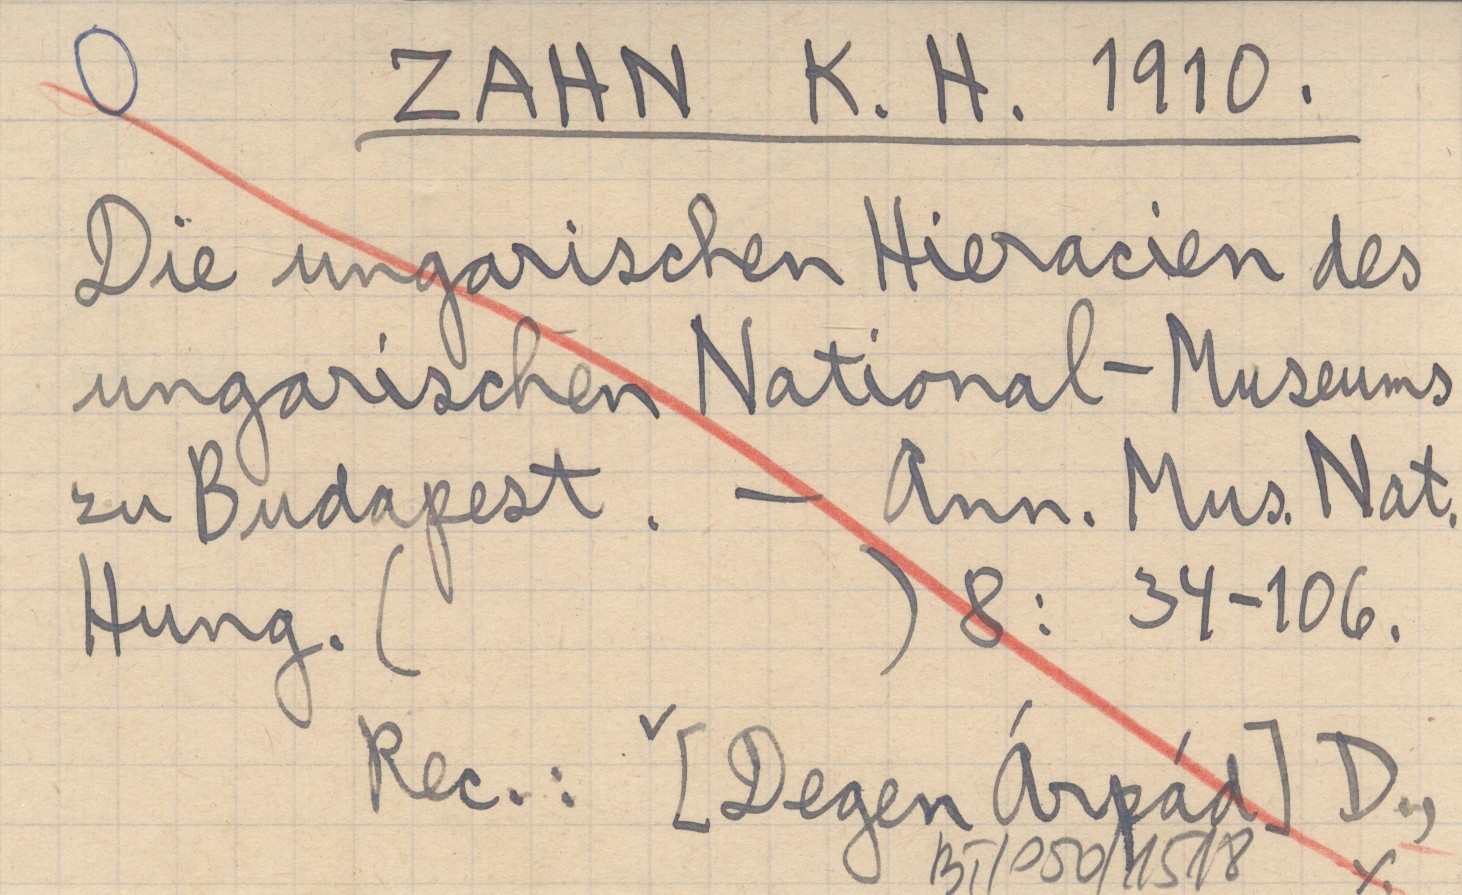 ZAHN K. H. 1910.
Die ungarischen Hieracien des
ungarischen National-Museums
zu Budapest. — Ann. Mus. Nat.
Hung. ( ) 8: 34-106.
Rec.: [Degen Árpád] D.,